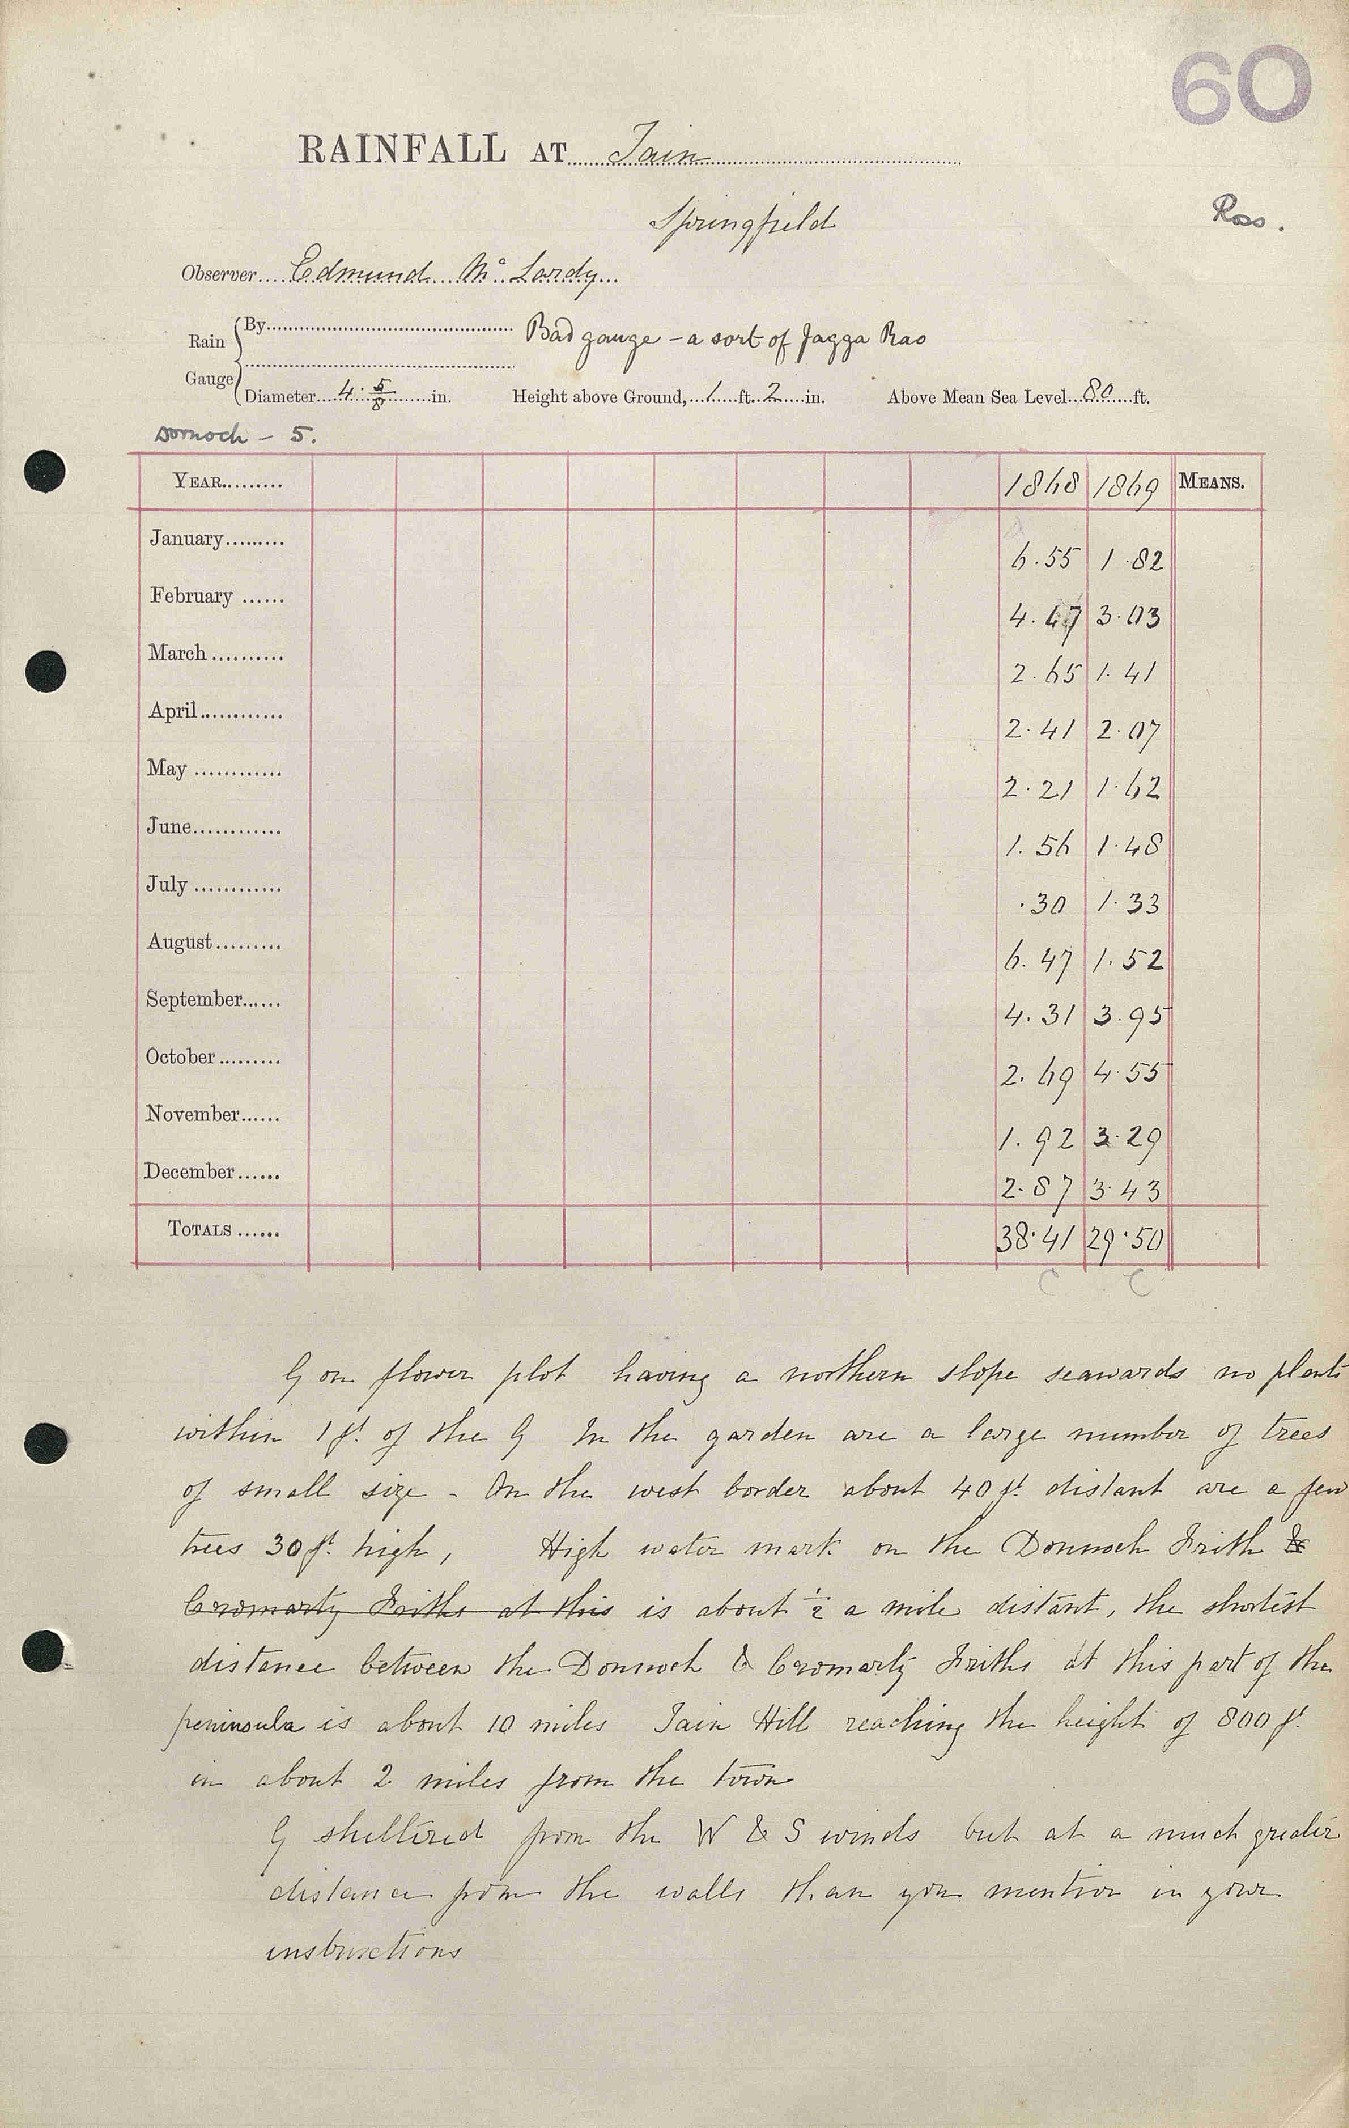 60
RAINFALL AT Tain
Springfield
Ross.
Observer Edmund Mc Lardy
Rain Gauge { By
Bad gauge - a sort of Jagga Rao
Diameter 4 5/8 in. Height above Ground, 1 ft. 2 in. Above Mean Sea Level 80 ft.
Dornoch - 5.
YEAR 1868 1869 MEANS.
January 6.55 1.82
February 4.47 3.03
March 2.65 1.41
April 2.41 2.07
May 2.21 1.62
June 1.56 1.48
July .30 1.33
August 6.47 1.52
September 4.31 3.95
October 2.69 4.55
November 1.92 3.29
December 2.87 3.43
TOTALS 38.41 29.50
C C
G on flower plot having a northern slope seawards no plants
within 1 ft. of the G In the garden are a large number of trees
of small size - On the west border about 40 ft distant are a few
trees 30 ft. high, High water mark on the Dornoch Frith &
Cromarty Friths at this is about ½ a mile distant, the shortest
distance between the Dornoch & Cromarty Friths at this part of the
peninsula is about 10 miles Tain Hill reaching the height of 800 ft
in about 2 miles from the town
G sheltered from the W & S winds but at a much greater
distance from the walls than you mention in your
instructions